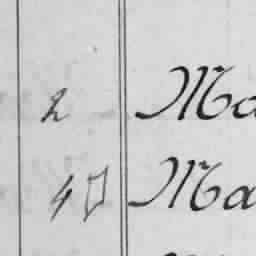 2 Ma
4 Ma